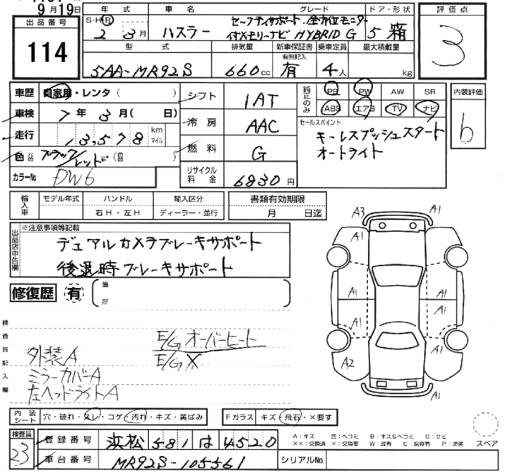 9月19日
出品番号
114
S・H・R 年式 2年3月
車名 ハスラー
グレード セーフティサポート・全方位モニター
イナズモリーナビ HYBRID G
ドア・形状 5 箱
評価点
3
型式 5AA-MR92S
排気量 660cc
新車保証書 有無記入 有
乗車定員 4人
最大積載量 kg
車歴 自家用・レンタ( )
車検 7年3月( 日)
走行 13,578 km マイル
色 ブラック/レッド
カラーNo DW6
シフト 1AT
冷房 AAC
燃料 G
リサイクル料金 6830円
純正のみ PS PW AW SR
ABS エアB TV ナビ
内装評価
b
セールスポイント
キーレスプッシュスタート
オートライト
輸入車 モデル年式 ハンドル 輸入区分
年 右H・左H ディーラー・並行
書類有効期限
月 日迄
出品店申告欄
※注意事項等記載
デュアルカメラブレーキサポート
後退時ブレーキサポート
修復歴 有 箇所
検査員記入欄
E/G オーバーヒート
E/G X
外装A
ミラーカバーA
左ヘッドライトA
A3 A1
A1 A1
A1 A1 A1
A1 A1
A2 A1
A1
内装シート 穴・破れ・スレ・コゲ・汚れ・キズ・黄ばみ
Fガラス キズ・飛石・X要す
スペア
検査員
23
登録番号 浜松 581 は 4520
車台番号 MR92S-105561
シリアルNo.